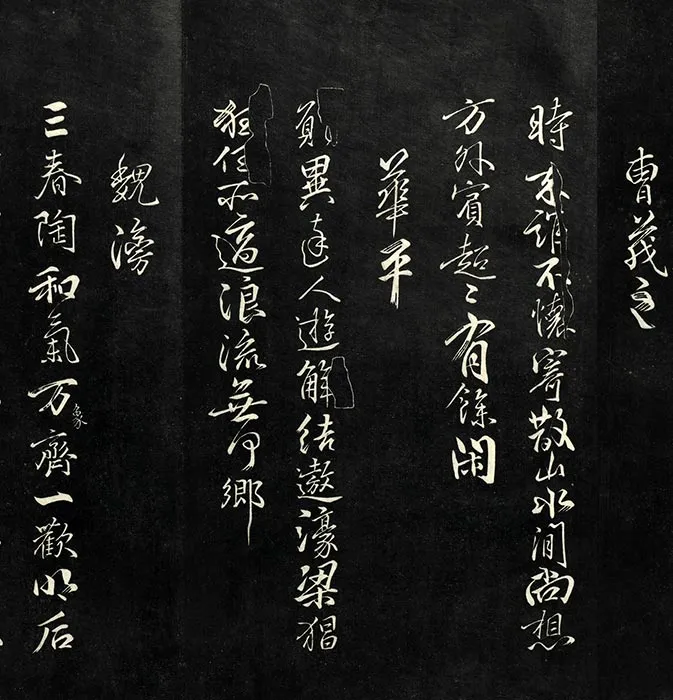 曹茂之
時来誰不懷寄散山水間尚想
方外賓超〻有餘閑
華平
願與達人遊解結遨濠梁狂
狂任所適浪流無何鄉
魏滂
三春陶和氣万象齊一歡明后